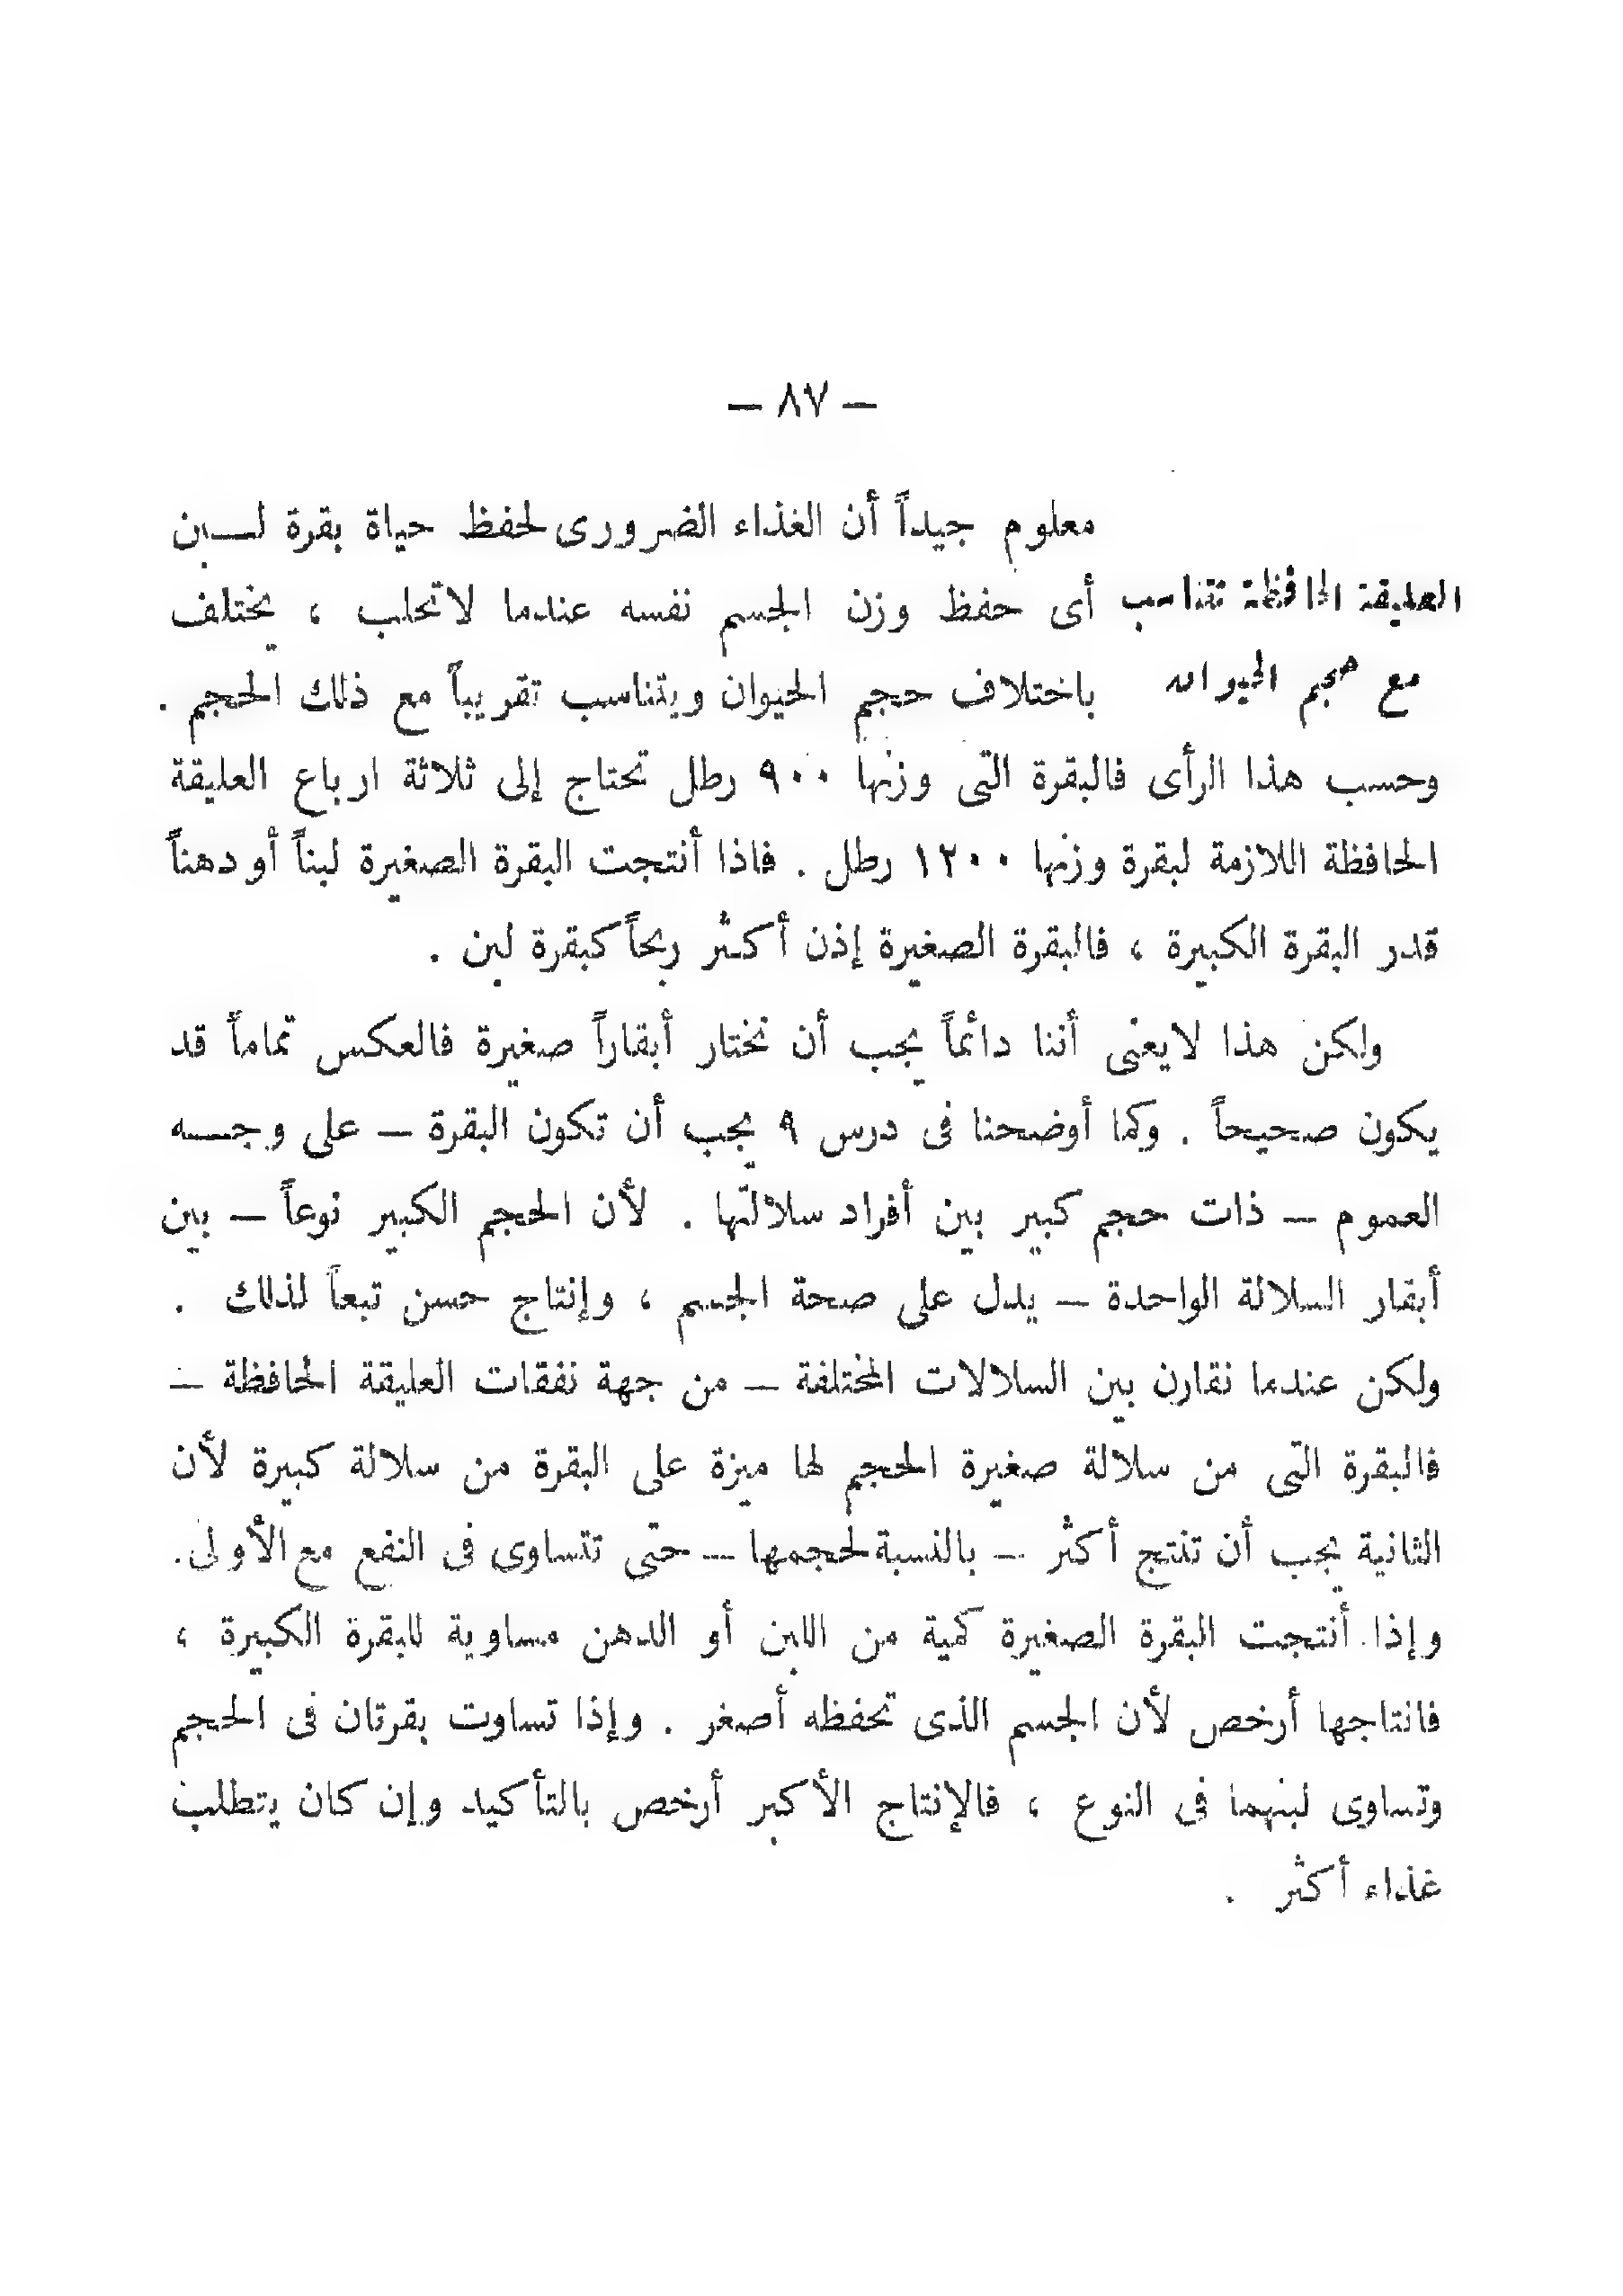 — ٨٧ —
العليقة الحافظة تتناسب
مع حجم الحيوان
معلوم جيداً أن الغذاء الضرورى لحفظ حياة بقرة لبن
أى حفظ وزن الجسم نفسه عندما لا تحلب ، يختلف
باختلاف حجم الحيوان ويتناسب تقريباً مع ذلك الحجم .
وحسب هذا الرأى فالبقرة التى وزنها ٩٠٠ رطل تحتاج إلى ثلاثة ارباع العليقة
الحافظة اللازمة لبقرة وزنها ١٢٠٠ رطل . فاذا أنتجت البقرة الصغيرة لبناً أو دهناً
قدر البقرة الكبيرة ، فالبقرة الصغيرة إذن أكثر ربحاً كبقرة لبن .
ولكن هذا لا يعنى أننا دائماً يجب أن نختار أبقاراً صغيرة فالعكس تماماً قد
يكون صحيحاً . وكما أوضحنا فى درس ٩ يجب أن تكون البقرة — على وجه
العموم — ذات حجم كبير بين أفراد سلالتها . لأن الحجم الكبير نوعاً — بين
أبقار السلالة الواحدة — يدل على صحة الجسم ، وإنتاج حسن تبعاً لذلك .
ولكن عندما نقارن بين السلالات المختلفة — من جهة نفقات العليقة الحافظة —
فالبقرة التى من سلالة صغيرة الحجم لها ميزة على البقرة من سلالة كبيرة لأن
الثانية يجب أن تنتج أكثر — بالنسبة لحجمها — حتى تتساوى فى النفع مع الأولى .
وإذا أنتجت البقرة الصغيرة كمية من اللبن أو الدهن مساوية للبقرة الكبيرة ،
فانتاجها أرخص لأن الجسم الذى تحفظه أصغر . وإذا تساوت بقرتان فى الحجم
وتساوى لبنهما فى النوع ، فالإنتاج الأكبر أرخص بالتأكيد وإن كان يتطلب
غذاء أكثر .